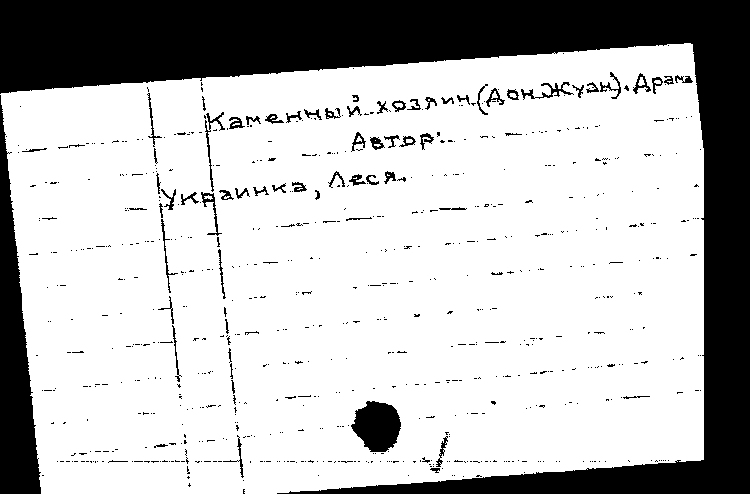 Каменный хозяин (Дон Жуан). Драма
Автор:
Украинка, Леся.